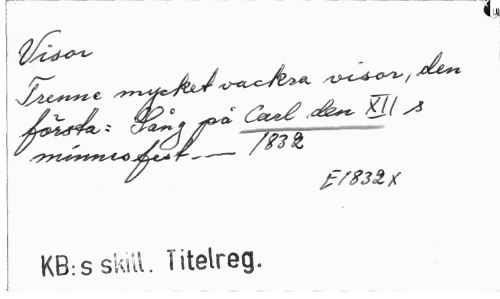 Visor
Trenne mycket vackra visor, den
första: Sång på Carl den XII s
minnesfest. — 1832
E1832x
KB:s skill. Titelreg.